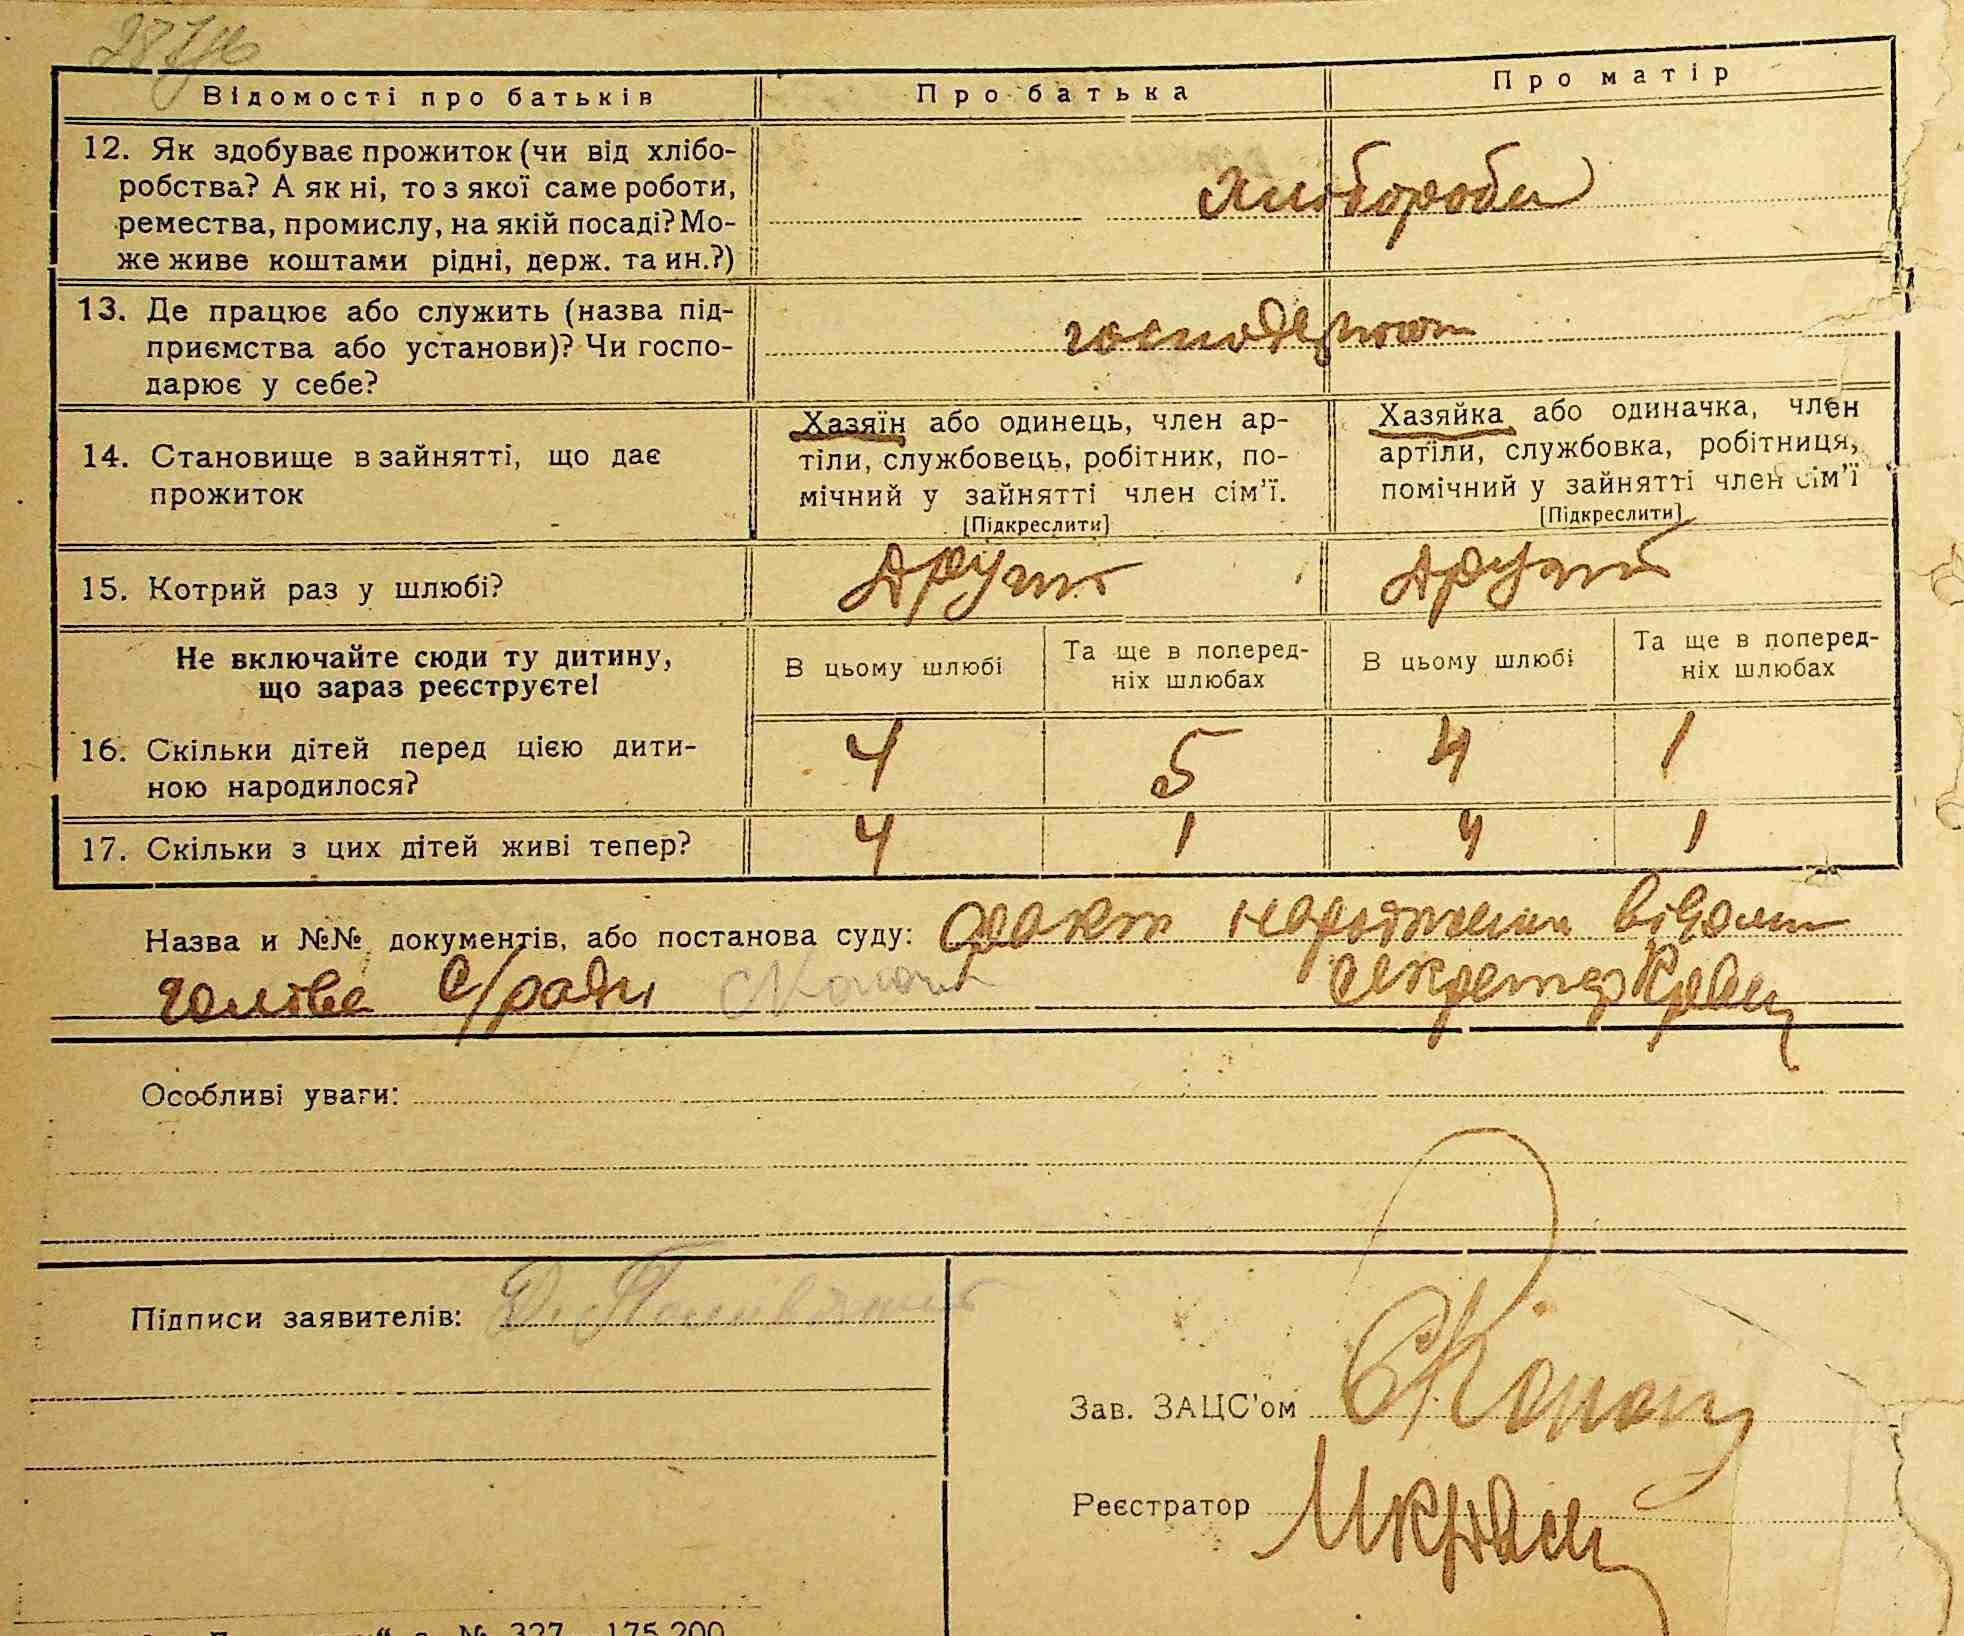 Відомості про батьків
Про батька
Про матір
12. Як здобуває прожиток (чи від хлібо-
робства? А як ні, то з якої саме роботи,
ремества, промислу, на якій посаді? Мо-
же живе коштами рідні, держ. та ин.?)
хлібороби
13. Де працює або служить (назва під-
приємства або установи)? Чи госпо-
дарює у себе?
14. Становище в зайнятті, що дає
прожиток
Хазяїн або одинець, член ар-
тіли, службовець, робітник, по-
мічний у зайнятті член сім'ї.
[Підкреслити]
Хазяйка або одиначка, член
артіли, службовка, робітниця,
помічний у зайнятті член сім'ї
[Підкреслити]
15. Котрий раз у шлюбі?
Другий
Другий
Не включайте сюди ту дитину,
що зараз реєструєте!
В цьому шлюбі
Та ще в поперед-
ніх шлюбах
В цьому шлюбі
Та ще в поперед-
ніх шлюбах
16. Скільки дітей перед цією дити-
ною народилося?
4 5 4 1
17. Скільки з цих дітей живі тепер?
4 1 4 1
Назва и №№ документів, або постанова суду: факт народження відомий
голові с/ради секретар
Особливі уваги:
Підписи заявителів:
Зав. ЗАЦС'ом
Реєстратор
№ 327 175.200